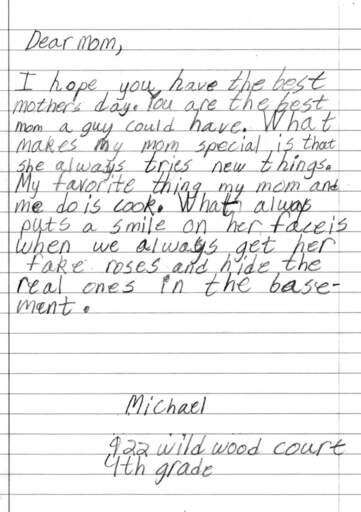 Dear mom,
I hope you have the best
mothers day. You are the best
mom a guy could have. What
makes my mom special is that
she always tries new things.
My favorite thing my mom and
me do is cook. What always
puts a smile on her face is
when we always get her
fake roses and hide the
real ones in the base-
ment.
Michael
922 wild wood court
4th grade